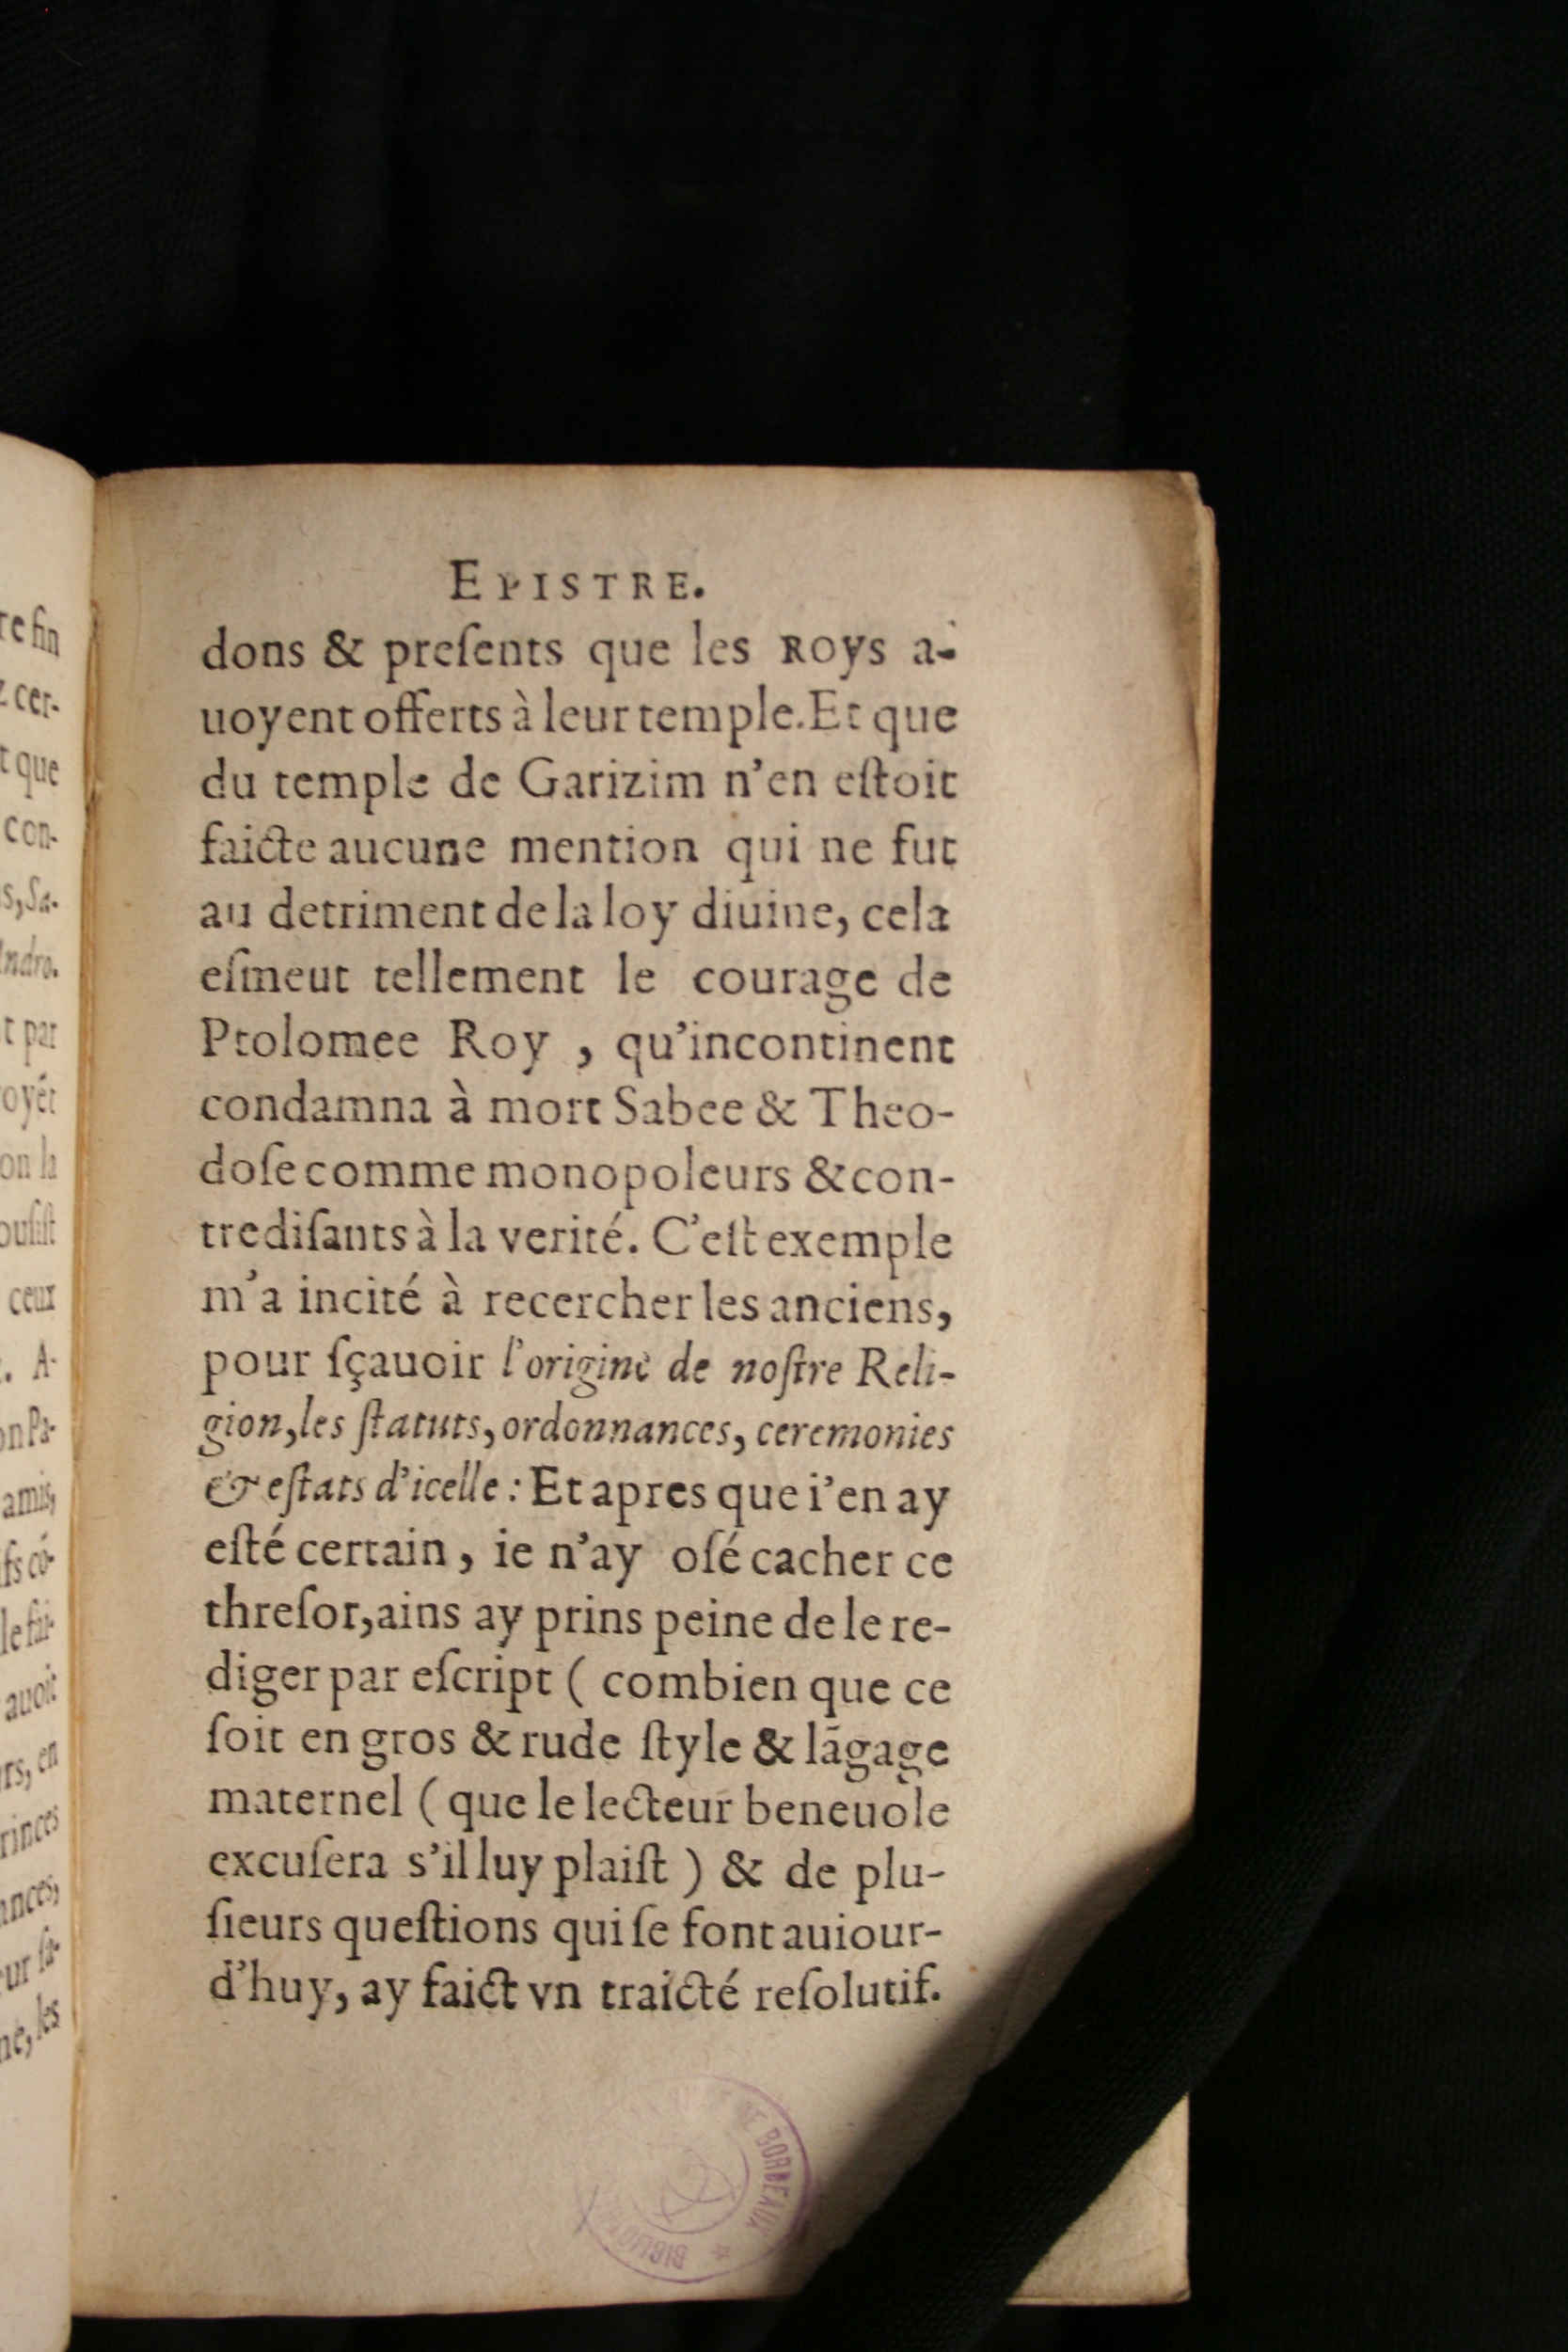 EPISTRE.
dons & preſents que les ROYS a-
uoyent offerts à leur temple. Et que
du temple de Garizim n'en eſtoit
faicte aucune mention qui ne fut
au detriment de la loy diuine, cela
eſmeut tellement le courage de
Ptolomee Roy , qu'incontinent
condamna à mort Sabee & Theo-
doſe comme monopoleurs & con-
trediſants à la verité. C'eſt exemple
m'a incité à recercher les anciens,
pour ſçauoir l'origine de noſtre Reli-
gion, les ſtatuts, ordonnances, ceremonies
& eſtats d'icelle : Et apres que i'en ay
eſté certain, ie n'ay oſé cacher ce
threſor, ains ay prins peine de le re-
diger par eſcript ( combien que ce
ſoit en gros & rude ſtyle & lāgage
maternel ( que le lecteur beneuole
excuſera s'il luy plaiſt ) & de plu-
ſieurs queſtions qui ſe font auiour-
d'huy, ay faict vn traicté reſolutif.
re fin
cer-
t que
con-
s, Sa-
t par
on la
ceux
. A-
on Pa-
amis,
auoit
rs, en
rinces
ances,
les
DE BORDEAUX